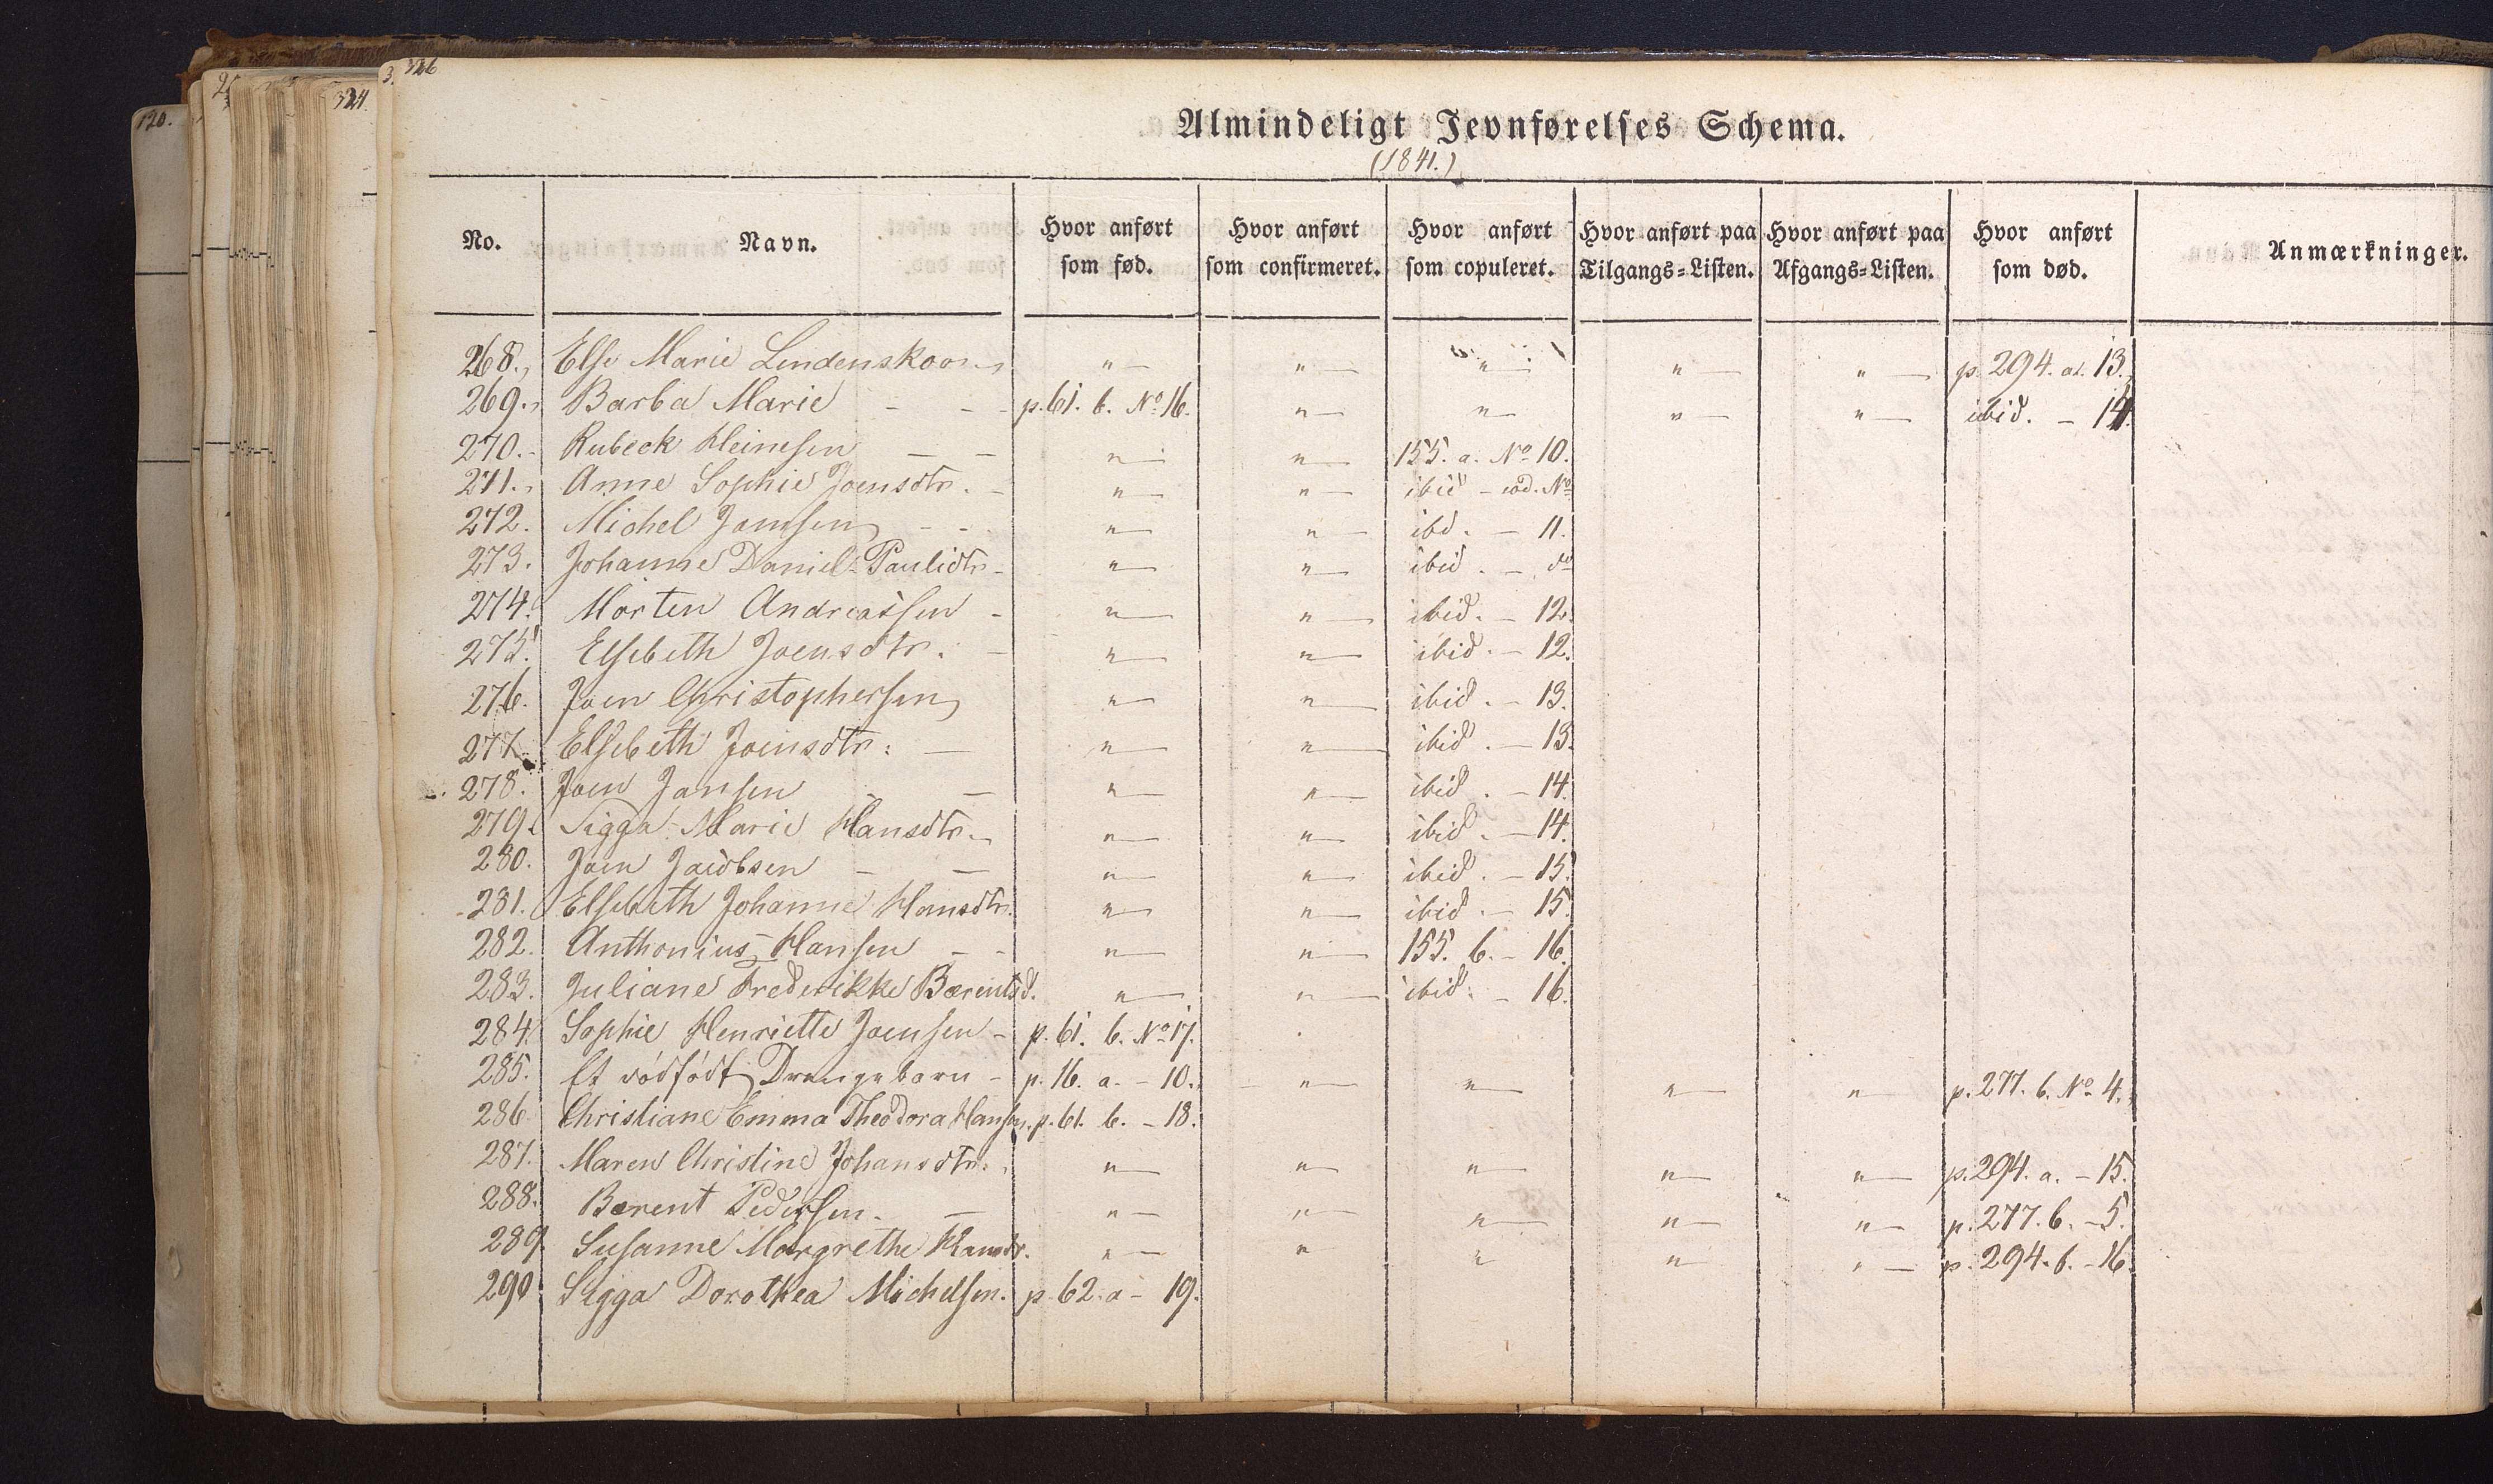 120.
324.
326
Almindeligt Jevnførelses Schema.
(1841.)
No. Navn. Hvor anført som fød. Hvor anført som confirmeret. Hvor anført som copuleret. Hvor anført paa Tilgangs=Listen. Hvor anført paa Afgangs=Listen. Hvor anført som død. Anmærkninger.
268. Else Marie Lendenskov " — " — " — " — " — p. 294. a. 13.
269. Barba Marie — — p. 61. b. No 16. " — " — " — " — ibid. — 14.
270. Rubeck Heinesen — — " — " — 155. a. No 10.
271. Anne Sophie Joensdtr. — " — " — ibid — eod. No
272. Michel Jamsen — — " — " — ibd. — 11.
273. Johanne Daniel Paulidtr — " — " — ibid. — do
274. Morten Andreassen — " — " — ibid. — 12.
275. Elsebeth Joensdtr. — " — " — ibid. — 12.
276. Joen Christophersen " — " — ibid. — 13.
277. Elsebeth Joensdtr: — " — " — ibid. — 13.
278. Joen Jansen — — " — " — ibid. — 14.
279. Sigga Marie Hansdtr. " — " — ibid. — 14.
280. Joen Jacobsen — — " — " — ibid. — 15.
281. Elsebeth Johanne Hansdtr. " — " — ibid. — 15.
282. Anthonius Hansen — — " — " — 155. b. — 16.
283. Juliane Frederikke Bærentsd. " — " — ibid. — 16.
284. Sophie Henriette Joensen — p. 61. b. No 17.
285. Et dødfødt Drengebarn — p. 16. a. — 10. " — " — " — " — p. 277. b. No 4.
286. Christiane Emma Theodora Hansen. p. 61. b. — 18.
287. Maren Christine Johansdtr. " — " — " — " — " — p. 294. a. — 15.
288. Bærent Pedersen. — " — " — " — " — " — p. 277. b. — 5.
289. Susanne Margrethe Hansdr. " — " " " — " — p. 294. b. — 16.
290. Sigga Dorothea Michelsen. p. 62. a — 19.